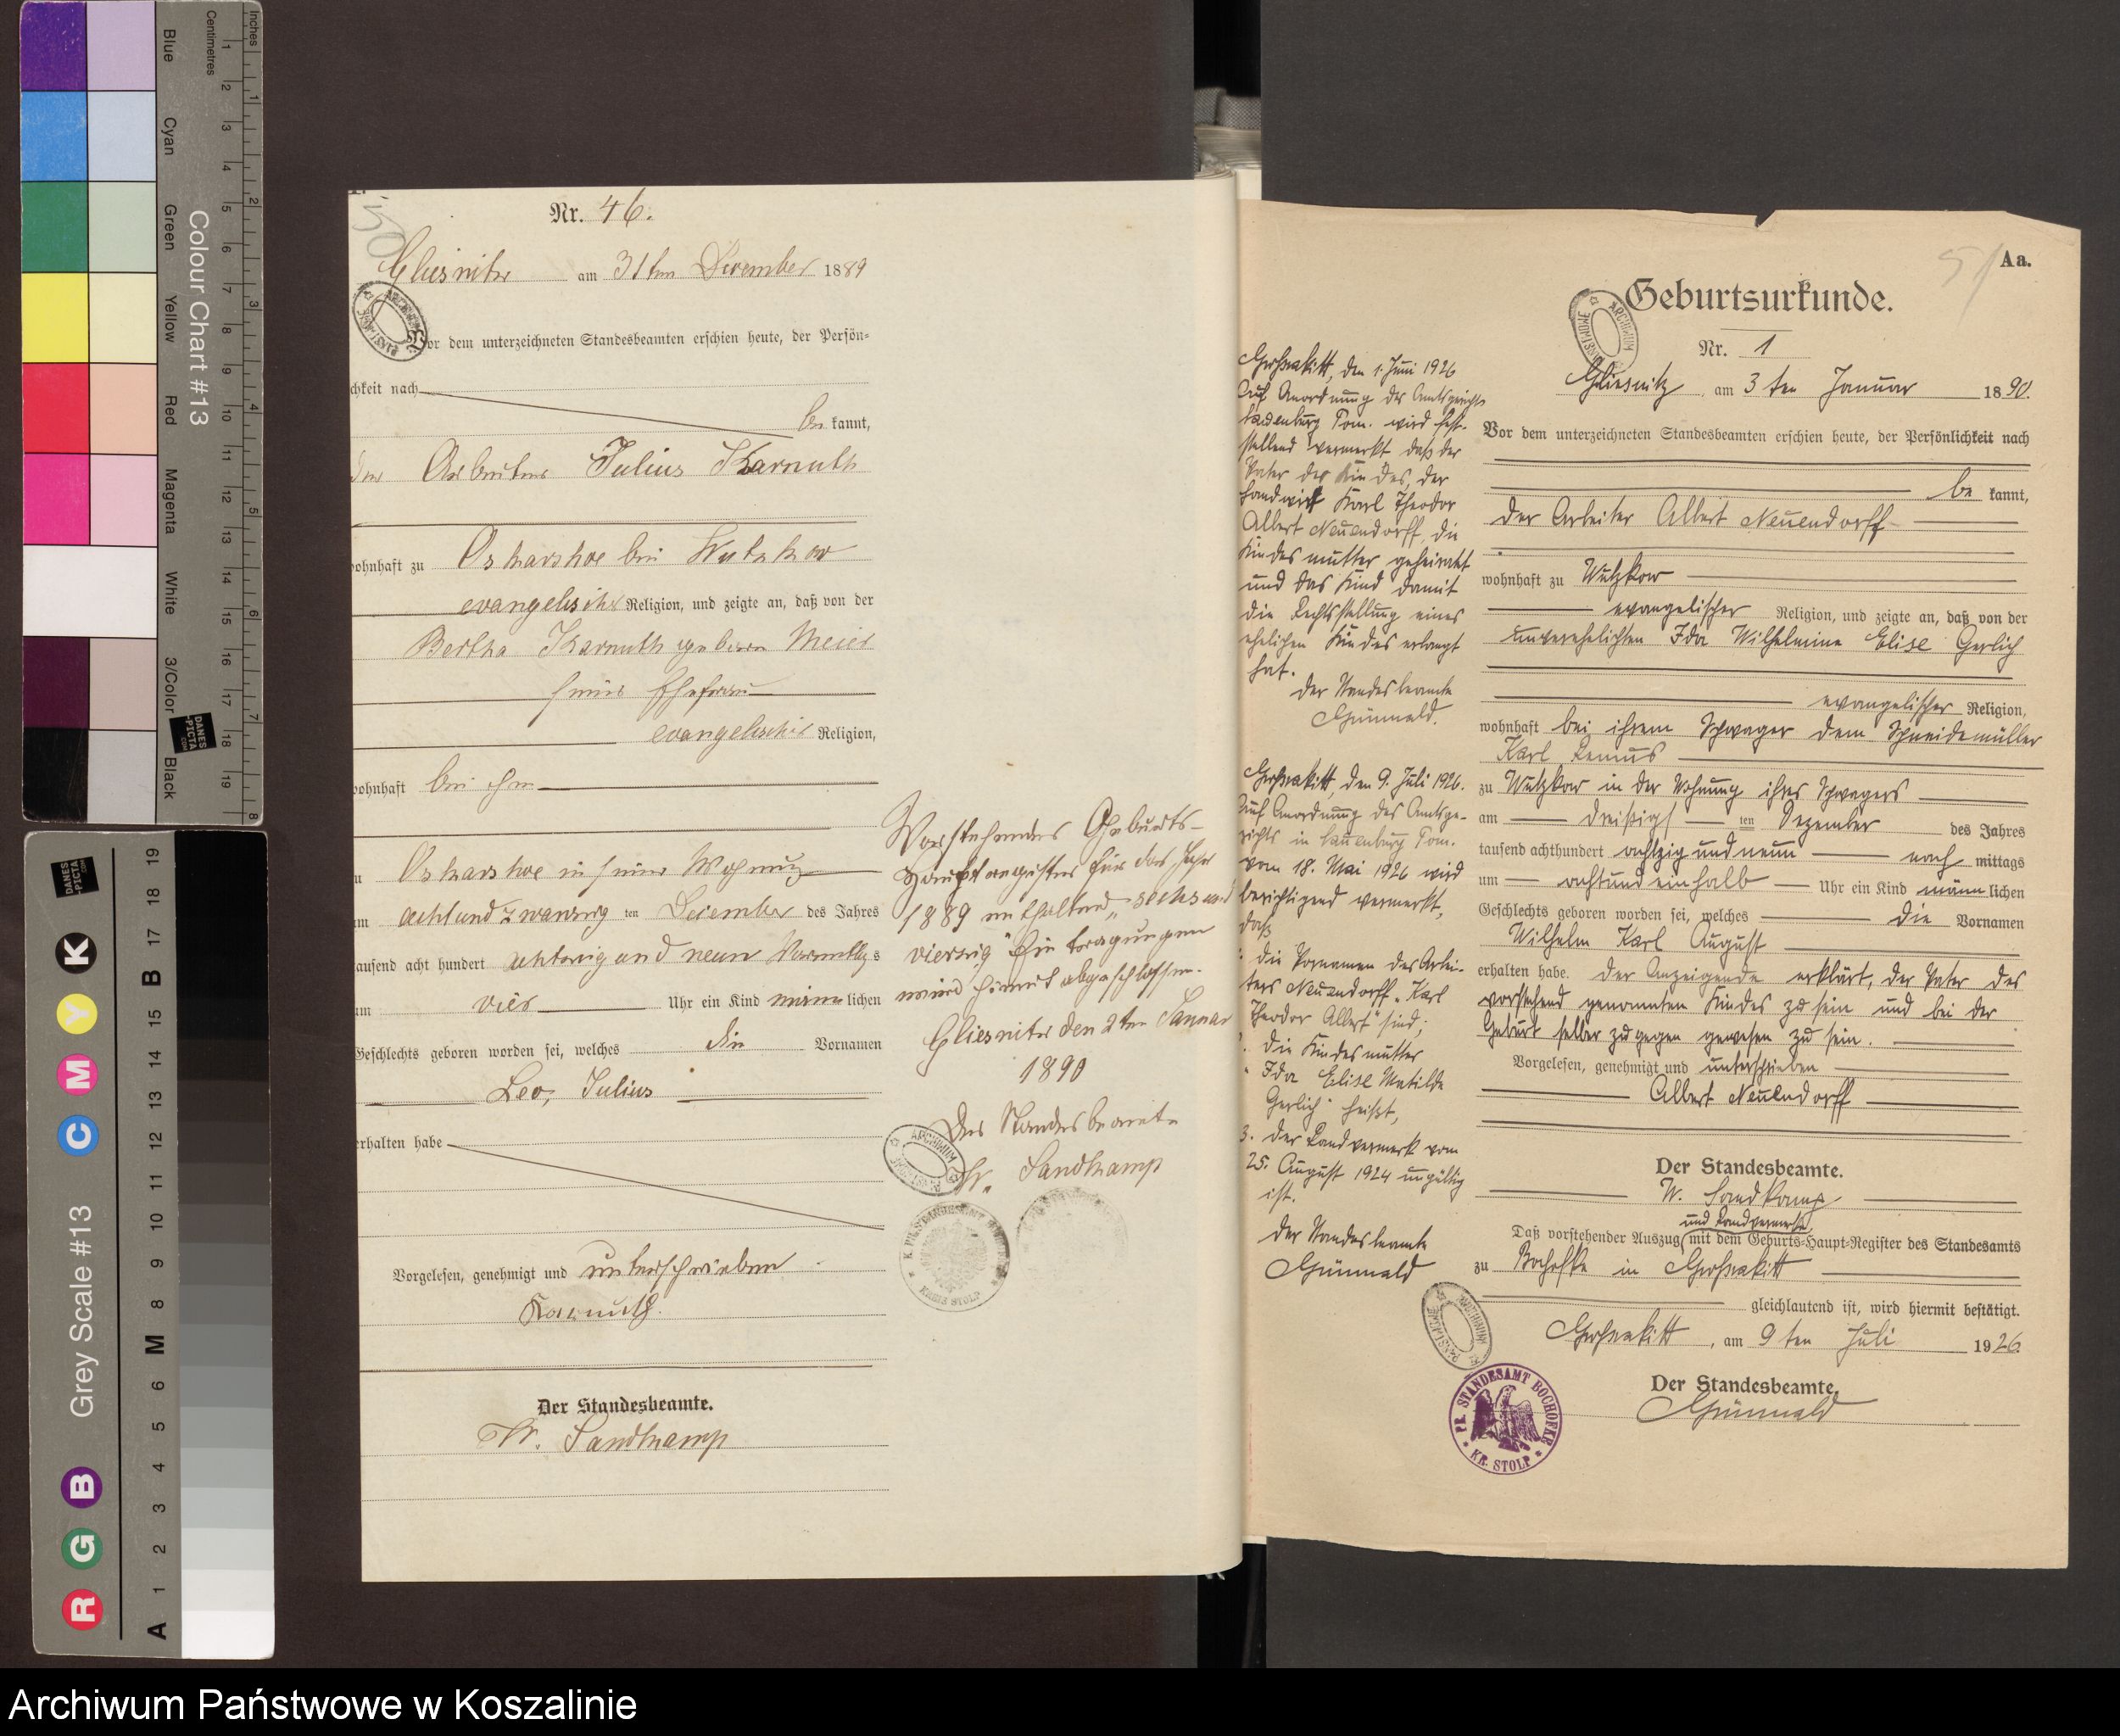 Inches
Centimetres
Colour Chart #13
Blue
Cyan
Green
Yellow
Red
Magenta
White
3/Color
Black
DANES
-PICTA
.COM
Grey Scale #13
R G B C M Y K
A 1 2 3 4 5 6 M 8 9 10 11 12 13 14 15 B 17 18 19
50
Nr. 46.
Gliesnitz am 31ten December 1889
Vor dem unterzeichneten Standesbeamten erschien heute, der Persön-
chkeit nach
be kannt,
der Arbeiter Julius Karnuth
wohnhaft zu Oskarshoe bei Wutzkow
evangelischer Religion, und zeigte an, daß von der
Bertha Karnuth geboren Meier
seiner Ehefrau
evangelischer Religion,
wohnhaft bei ihm
zu Oskarshoe in seiner Wohnung
am achtundzwanzig ten December des Jahres
tausend acht hundert achtzig und neun Vormittags
um vier Uhr ein Kind männ lichen
Geschlechts geboren worden sei, welches die Vornamen
Leo, Julius
erhalten habe
Vorgelesen, genehmigt und unterschrieben
Karnuth.
Der Standesbeamte.
W. Sandkamp
Vorstehendes Geburts-
Hauptregister für das Jahr
1889 enthaltend „sechs und
vierzig" Eintragungen
wird hiermit abgeschlossen.
Gliesnitz den 2ten Januar
1890
Der Standesbeamte
W. Sandkamp
ARCHIWUM PAŃSTWOWE
KREIS STOLP
51
Aa.
Geburtsurkunde.
Nr. 1
Gliesnitz am 3 ten Januar 1890.
Vor dem unterzeichneten Standesbeamten erschien heute, der Persönlichkeit nach
be kannt,
der Arbeiter Albert Neuendorff
wohnhaft zu Wutzkow
evangelischer Religion, und zeigte an, daß von der
unverehelichten Ida Wilhelmine Elise Gerlich
evangelischer Religion,
wohnhaft bei ihrem Schwager dem Schneidemüller
Karl Remus
zu Wutzkow in der Wohnung ihres Schwagers
am dreißigs ten Dezember des Jahres
tausend achthundert achtzig und neun nach mittags
um achtundeinhalb Uhr ein Kind männ lichen
Geschlechts geboren worden sei, welches die Vornamen
Wilhelm Karl August
erhalten habe. Der Anzeigende erklärt, der Vater des
vorstehend genannten Kindes zu sein und bei der
Geburt selber zugegen gewesen zu sein.
Vorgelesen, genehmigt und unterschrieben
Albert Neuendorff
Der Standesbeamte.
W. Sandkamp
und Randvermerke
Daß vorstehender Auszug mit dem Geburts-Haupt-Register des Standesamts
zu Bochofke in Großrakitt
gleichlautend ist, wird hiermit bestätigt.
Großrakitt, am 9 ten Juli 1926.
Der Standesbeamte.
Grünwald
PR. STANDESAMT BOCHOFKE
KR. STOLP
Großrakitt, den 1. Juni 1926
Auf Anordnung des Amtsgerichts
Lauenburg Pom. wird fest-
stellend vermerkt daß der
Vater des Kindes, der
Landwirt Karl Theodor
Albert Neuendorff, die
Kindesmutter geheiratet
und das Kind damit
die Rechtsstellung eines
ehelichen Kindes erlangt
hat.
Der Standesbeamte
Grünwald.
Großrakitt, den 9. Juli 1926.
Auf Anordnung des Amtsge-
richts in Lauenburg Pom.
vom 18. Mai 1926 wird
berichtigend vermerkt,
daß
die Vornamen des Arbei-
ters Neuendorff „Karl
Theodor Albert" sind;
die Kindesmutter
„Ida Elise Matilde
Gerlich" heißt,
3. der Randvermerk vom
25. August 1924 ungültig
ist.
Der Standesbeamte
Grünwald
Archiwum Państwowe w Koszalinie